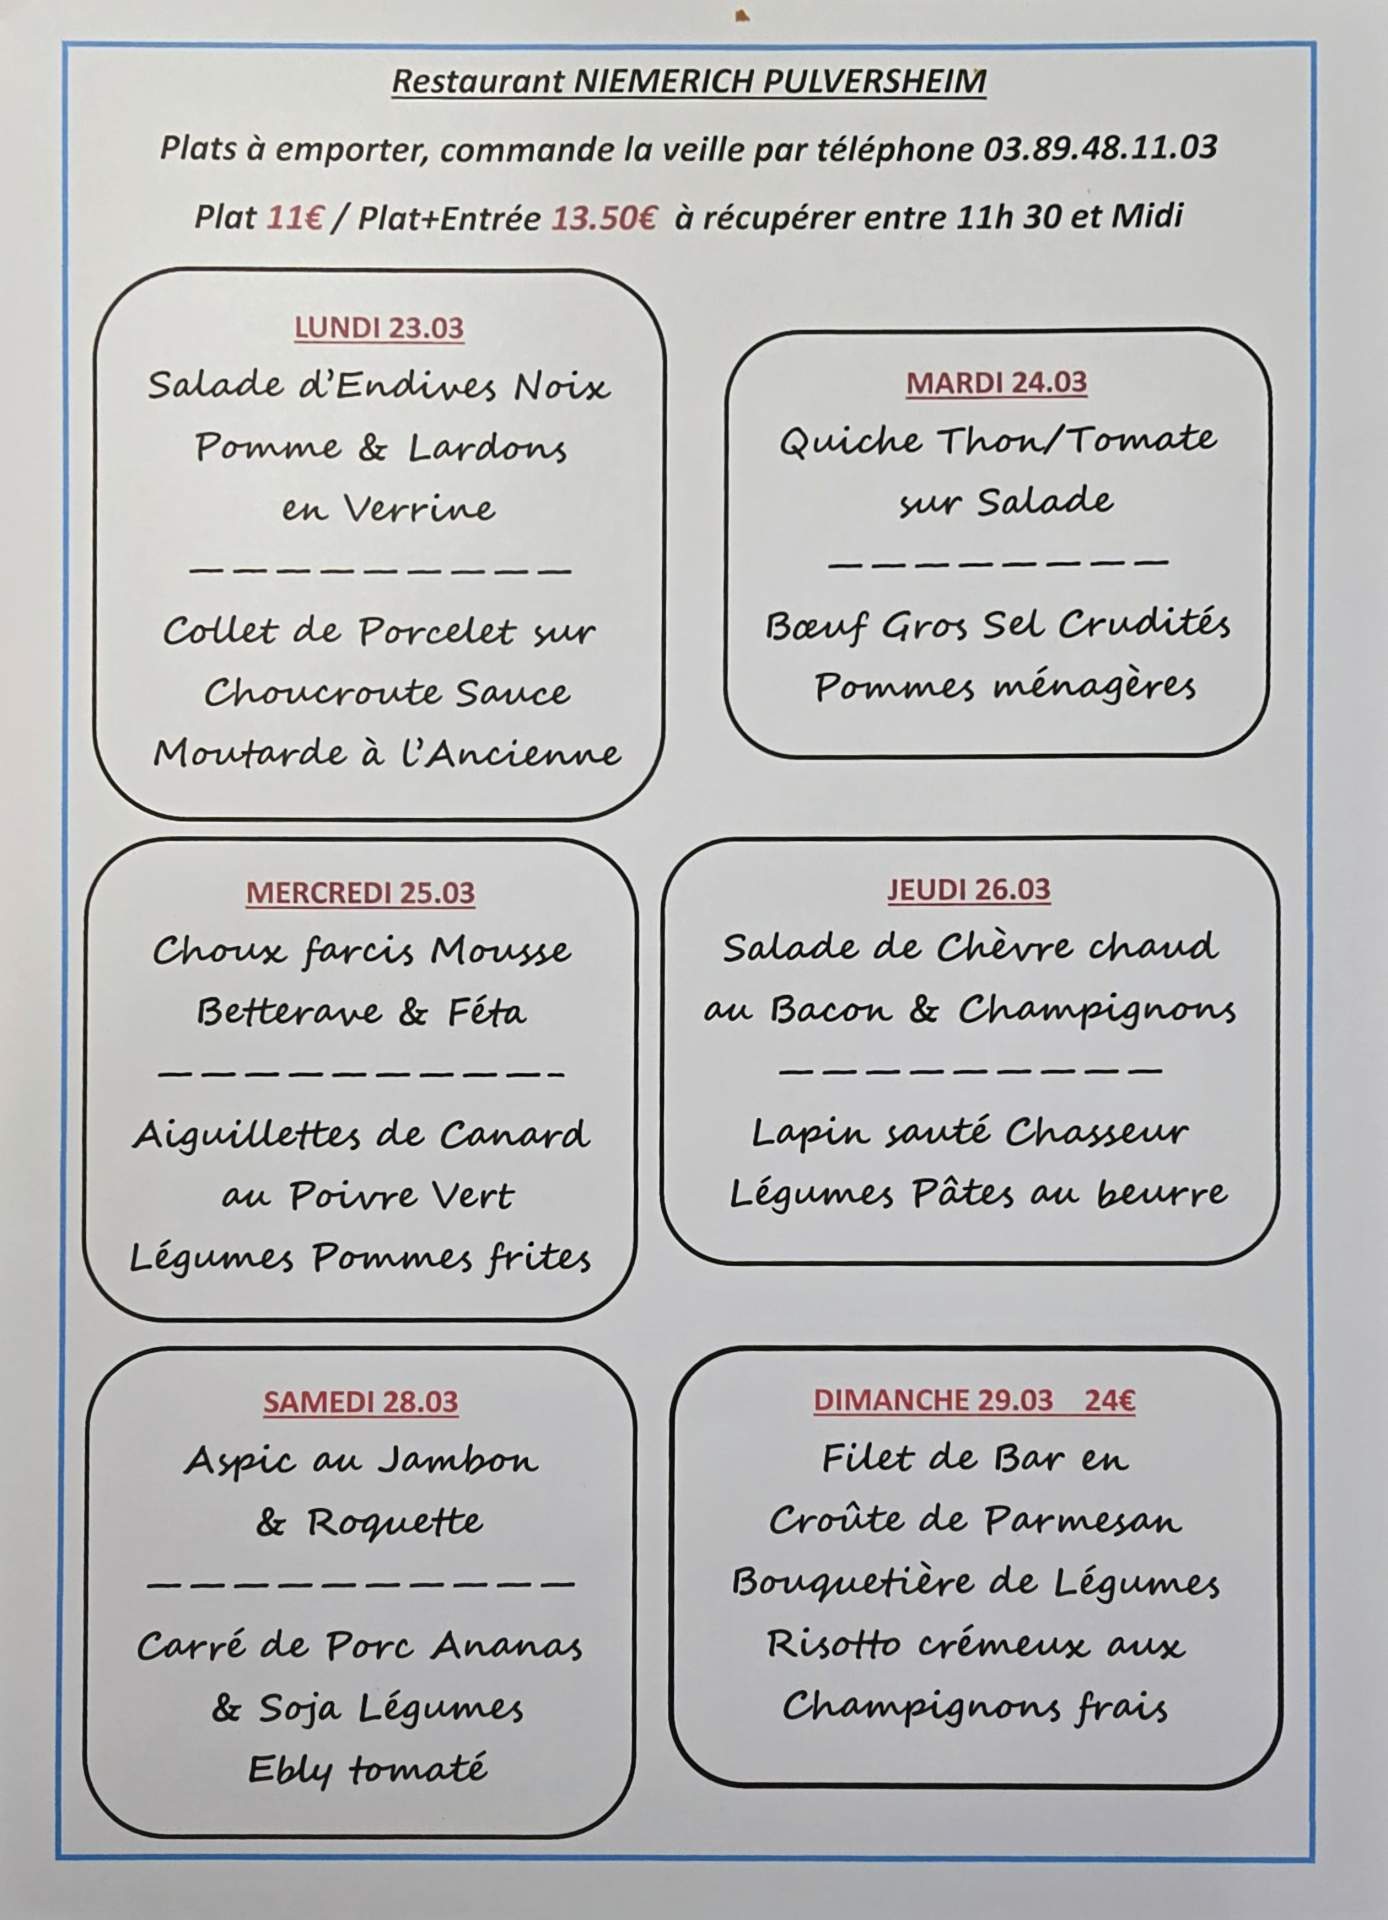 Restaurant NIEMERICH PULVERSHEIM
Plats à emporter, commande la veille par téléphone 03.89.48.11.03
Plat 11€ / Plat+Entrée 13.50€ à récupérer entre 11h 30 et Midi
LUNDI 23.03
Salade d'Endives Noix
Pomme & Lardons
en Verrine
__________
Collet de Porcelet sur
Choucroute Sauce
Moutarde à l'Ancienne
MARDI 24.03
Quiche Thon/Tomate
sur Salade
________
Bœuf Gros Sel Crudités
Pommes ménagères
MERCREDI 25.03
Choux farcis Mousse
Betterave & Féta
_________-
Aiguillettes de Canard
au Poivre Vert
Légumes Pommes frites
JEUDI 26.03
Salade de Chèvre chaud
au Bacon & Champignons
_________
Lapin sauté Chasseur
Légumes Pâtes au beurre
SAMEDI 28.03
Aspic au Jambon
& Roquette
__________
Carré de Porc Ananas
& Soja Légumes
Ebly tomaté
DIMANCHE 29.03 24€
Filet de Bar en
Croûte de Parmesan
Bouquetière de Légumes
Risotto crémeux aux
Champignons frais